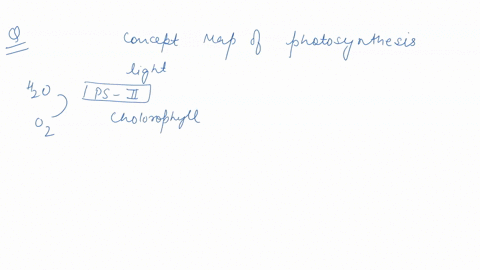 Q Concept Map of photosynthesis
light
H2O PS-II
O2 Cholorophyll